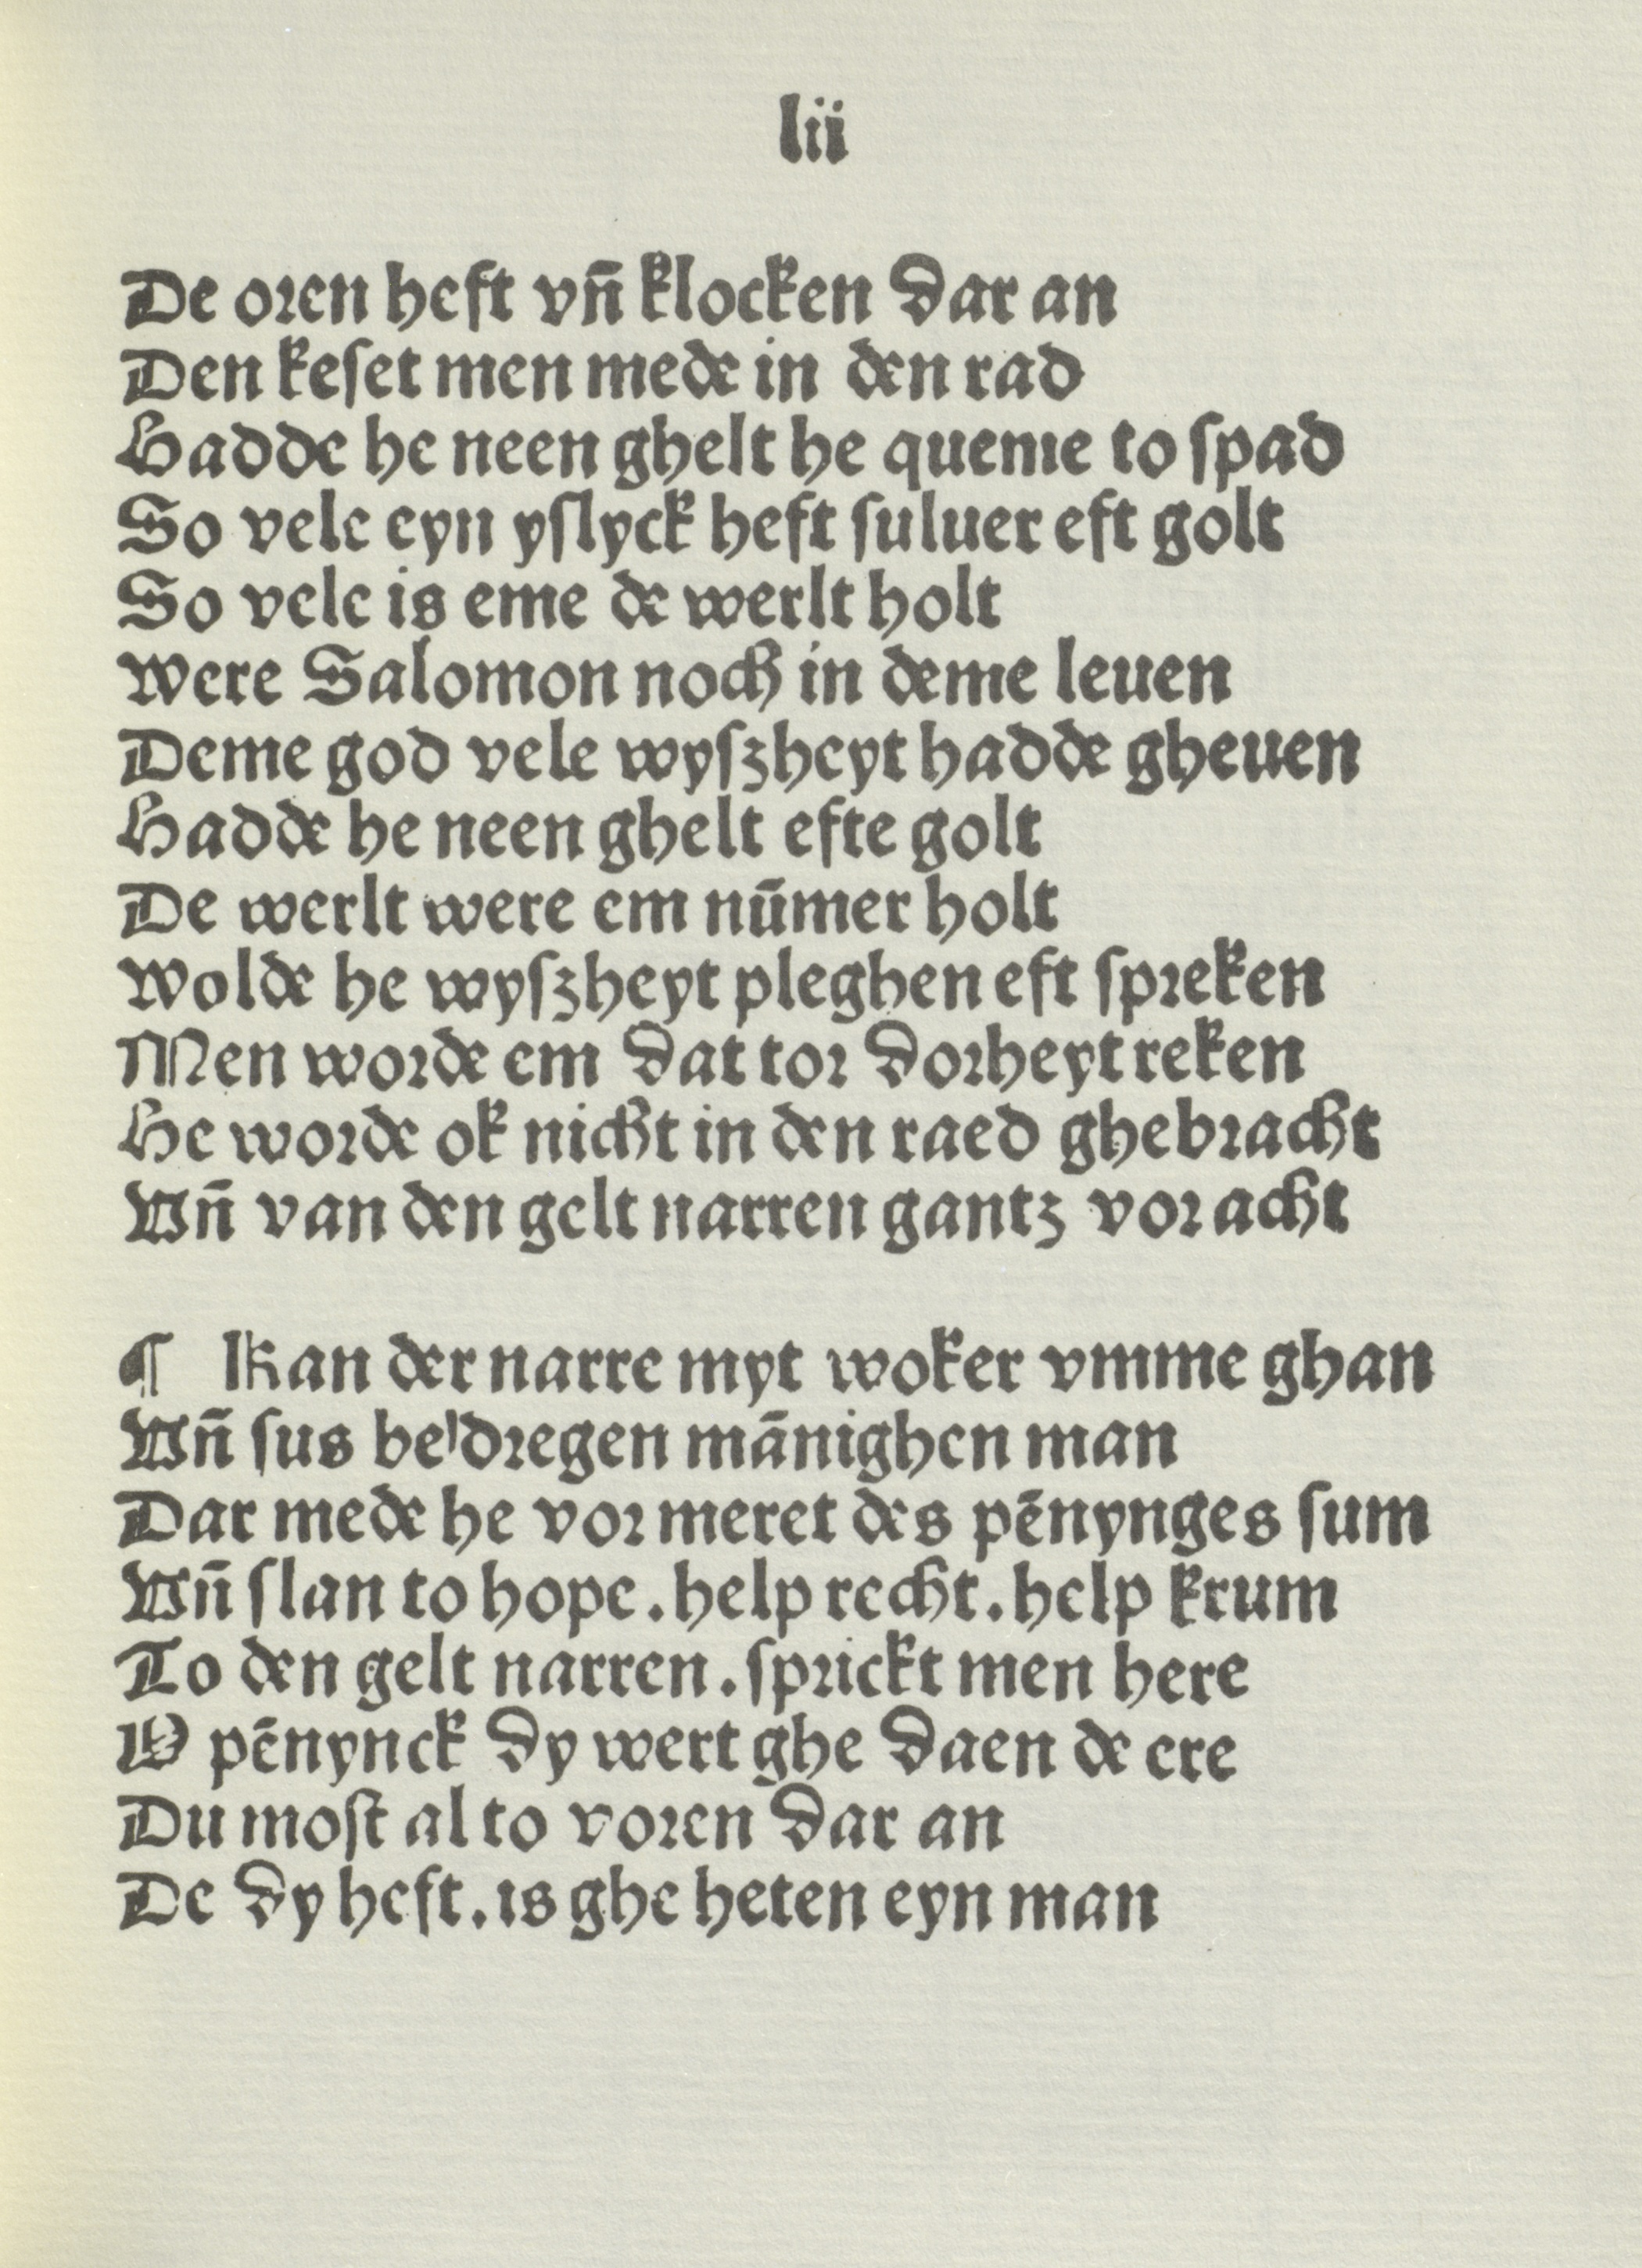 lii
De oren heft vñ klocken dar an
Den keſet men mede in den rad
Hadde he neen ghelt he queme to ſpad
So vele eyn yſlyck heft ſuluer eft golt
So vele is eme de werlt holt
Were Salomon noch in deme leuen
Deme god vele wyſzheyt hadde gheuen
Hadde he neen ghelt efte golt
De werlt were em nūmer holt
Wolde he wyſzheyt pleghen eft ſpreken
Men worde em dat tor dorheyt reken
He worde ok nicht in den raed ghebracht
Vñ van den gelt narren gantz vor acht
¶ Kan der narre myt woker vmme ghan
Vñ ſus bedregen mānighen man
Dar mede he vor meret des pēnynges ſum
Vñ ſlan to hope. help recht. help krum
To den gelt narren. ſprickt men here
O pēnynck dy wert ghe daen de ere
Du moſt al to voren dar an
De dy heft. is ghe heten eyn man